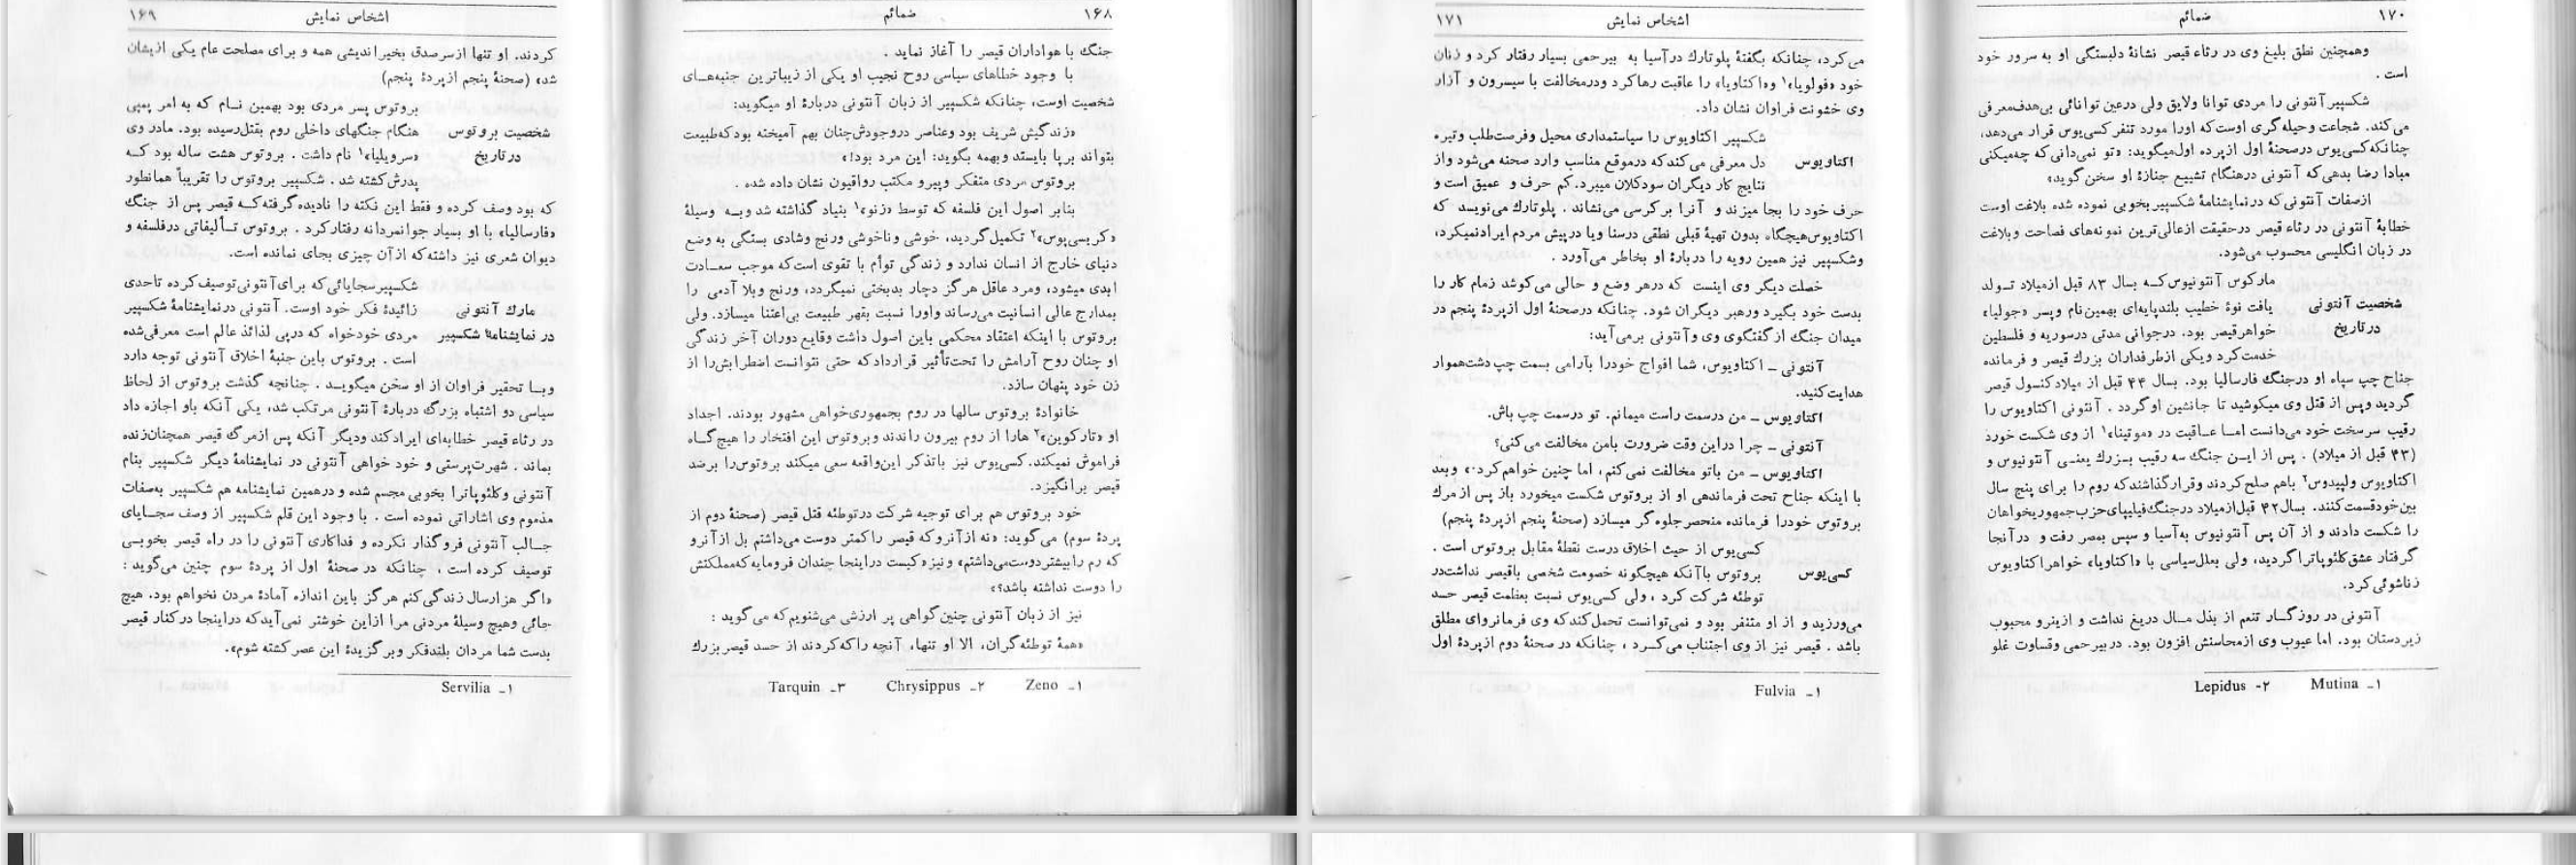 ۱۶۸ ضمائم
جنگ با هواداران قیصر را آغاز نماید .
با وجود خطاهای سیاسی روح نجیب او یکی از زیباترین جنبه‌هـای
شخصیت اوست، چنانکه شکسپیر از زبان آنتونی دربارهٔ او میگوید:
«زندگیش شریف بود وعناصر دروجودش‌چنان بهم آمیخته بودکه‌طبیعت
بتواند برپا بایستد وبهمه بگوید: این مرد بود!»
بروتوس مردی متفکر وپیرو مکتب رواقیون نشان داده شده .
بنابر اصول این فلسفه که توسط «زنو»۱ بنیاد گذاشته شد وبـه وسیلهٔ
«کریسی‌پوس»۲ تکمیل گردید، خوشی وناخوشی ورنج وشادی بستگی به وضع
دنیای خارج از انسان ندارد و زندگی توأم با تقوی است‌که موجب سعـادت
ابدی میشود، ومرد عاقل هرگز دچار بدبختی نمیگردد، ورنج وبلا آدمی را
بمدارج عالی انسانیت می‌رساند واورا نسبت بقهر طبیعت بی‌اعتنا میسازد. ولی
بروتوس با اینکه اعتقاد محکمی باین اصول داشت وقایع دوران آخر زندگی
او چنان روح آرامش را تحت‌تأثیر قراردادکه حتی نتوانست اضطرابش‌را از
زن خود پنهان سازد.
خانوادهٔ بروتوس سالها در روم بجمهوری‌خواهی مشهور بودند. اجداد
او «تارکوین»۳ هارا از روم بیرون راندند وبروتوس این افتخار را هیچ‌گـاه
فراموش نمیکند.کسی‌یوس نیز باتذکر این‌واقعه سعی میکند بروتوس‌را برضد
قیصر برانگیزد.
خود بروتوس هم برای توجیه شرکت درتوطئه قتل قیصر (صحنهٔ دوم از
پردهٔ سوم) می‌گوید: «نه ازآنروکه قیصر راکمتر دوست می‌داشتم بل ازآنرو
که رم رابیشتردوست‌می‌داشتم» و نیز «کیست دراینجا چندان فرومایه که‌مملکتش
را دوست نداشته باشد؟»
نیز از زبان آنتونی چنین‌گواهی پر ارزشی می‌شنویم‌که می‌گوید :
«همهٔ توطئه‌گران، الا او تنها، آنچه راکه‌کردند از حسد قیصربزرك
۱ـ Zeno ۲ـ Chrysippus ۳ـ Tarquin
اشخاص نمایش ۱۶۹
کردند. او تنها ازسرصدق بخیراندیشی همه و برای مصلحت عام یکی ازیشان
شد» (صحنهٔ پنجم ازپردهٔ پنجم)
شخصیت بروتوس
درتاریخ
بروتوس پسر مردی بود بهمین نـام که به امر پمپی
هنگام جنگهای داخلی روم بقتل‌رسیده بود. مادر وی
«سرویلیا»۱ نام داشت . بروتوس هشت ساله بود کـه
پدرش‌کشته شد . شکسپیر بروتوس را تقریباً همانطور
که بود وصف کرده و فقط این نکته را نادیده‌گرفته‌کـه قیصر پس از جنگ
«فارسالیا» با او بسیار جوانمردانه رفتارکرد . بروتوس تـألیفاتی درفلسفه و
دیوان شعری نیز داشته‌که ازآن چیزی بجای نمانده است.
مارك آنتونی
در نمایشنامهٔ شکسپیر
شکسپیرسجایائی‌که برای‌آنتونی‌توصیف‌کرده تاحدی
زائیدهٔ فکر خود اوست. آنتونی درنمایشنامهٔ شکسپیر
مردی خودخواه که درپی لذائذ عالم است معرفی‌شده
است . بروتوس باین جنبهٔ اخلاق آنتونی توجه دارد
وبـا تحقیر فراوان از او سخن میگویـد . چنانچه گذشت بروتوس از لحاظ
سیاسی دو اشتباه بزرگ دربارهٔ آنتونی مرتکب شد، یکی آنکه باو اجازه داد
در رثاء قیصر خطابه‌ای ایرادکند ودیگر آنکه پس ازمرگ قیصر همچنان‌زنده
بماند . شهرت‌پرستی و خود خواهی آنتونی در نمایشنامهٔ دیگر شکسپیر بنام
آنتونی وکلئوپاترا بخوبی مجسم شده ودرهمین نمایشنامه هم شکسپیر به‌صفات
مذموم وی اشاراتی نموده است . با وجود این قلم شکسپیر از وصف سجـایای
جـالب آنتونی فروگذار نکرده و فداکاری آنتونی را در راه قیصر بخوبـی
توصیف کرده است ، چنانکه در صحنهٔ اول از پردهٔ سوم چنین می‌گوید :
«اگر هزارسال زندگی‌کنم هرگز باین اندازه آمادهٔ مردن نخواهم بود. هیچ
جائی وهیچ وسیلهٔ مردنی مرا ازاین خوشتر نمی‌آیدکه دراینجا درکنار قیصر
بدست شما مردان بلندفکر وبرگزیدهٔ این عصرکشته شوم».
۱ـ Servilia
۱۷۰ ضمائم
وهمچنین نطق بلیغ وی در رثاء قیصر نشانهٔ دلبستگی او به سرور خود
است .
شکسپیرآنتونی را مردی توانا ولایق ولی درعین توانائی بی‌هدف‌معرفی
می‌کند. شجاعت وحیله‌گری اوست‌که اورا مورد تنفر کسی‌یوس قرار می‌دهد،
چنانکه‌کسی‌یوس درصحنهٔ اول ازپرده اول‌میگوید: «تو نمی‌دانی‌که چه‌میکنی
مبادا رضا بدهی‌که آنتونی درهنگام تشییع جنازهٔ او سخن‌گوید»
ازصفات آنتونی‌که درنمایشنامهٔ شکسپیربخوبی نموده شده بلاغت اوست
خطابهٔ آنتونی در رثاء قیصر درحقیقت ازعالی‌ترین نمونه‌های فصاحت وبلاغت
در زبان انگلیسی محسوب می‌شود.
شخصیت آنتونی
درتاریخ
مارکوس آنتونیوس‌کـه بسال ۸۳ قبل ازمیلاد تـولد
یافت نوهٔ خطیب بلندپایه‌ای بهمین‌نام وپسر «جولیا»
خواهرقیصر بود. درجوانی مدتی درسوریه و فلسطین
خدمت‌کرد ویکی ازطرفداران بزرك قیصر و فرمانده
جناح چپ سپاه او درجنگ فارسالیا بود. بسال ۴۴ قبل از میلادکنسول قیصر
گردید وپس از قتل وی میکوشید تا جانشین اوگردد . آنتونی اکتاویوس را
رقیب سرسخت خود می‌دانست امـا عـاقبت در «موتینا»۱ از وی شکست خورد
(۴۳ قبل از میلاد) . پس از ایـن جنگ سه رقیب بـزرك یعنـی آنتونیوس و
اکتاویوس ولپیدوس۲ باهم صلح‌کردند وقرارگذاشتندکه روم را برای پنج سال
بین‌خودقسمت‌کنند. بسال۴۲ قبل‌ازمیلاد درجنگ‌فیلیپای‌حزب‌جمهوریخواهان
را شکست دادند و از آن پس آنتونیوس به‌آسیا و سپس بمصر رفت و درآنجا
گرفتار عشق‌کلئوپاتراگردید، ولی بعلل‌سیاسی با «اکتاویا» خواهراکتاویوس
زناشوئی‌کرد.
آنتونی در روزگـار تنعم از بذل مـال دریغ نداشت و ازینرو محبوب
زیردستان بود. اما عیوب وی ازمحاسنش افزون بود. دربیرحمی وقساوت غلو
۱ـ Mutina ۲- Lepidus
اشخاص نمایش ۱۷۱
می‌کرد، چنانکه بگفتهٔ پلوتارك درآسیا به بیرحمی بسیار رفتار کرد و زنان
خود «فولویا»۱ و«اکتاویا» را عاقبت رهاکرد ودرمخالفت با سیسرون و آزار
وی خشونت فراوان نشان داد.
اکتاویوس
شکسپیر اکتاویوس را سیاستمداری محیل وفرصت‌طلب وتیره
دل معرفی می‌کندکه درموقع مناسب وارد صحنه می‌شود واز
نتایج کار دیگران سودکلان میبرد.کم حرف و عمیق است و
حرف خود را بجا میزند و آنرا برکرسی می‌نشاند . پلوتارك می‌نویسد که
اکتاویوس‌هیچگاه بدون تهیهٔ قبلی نطقی درسنا ویا درپیش مردم ایرادنمیکرد،
وشکسپیر نیز همین رویه را دربارهٔ او بخاطر می‌آورد .
خصلت دیگر وی اینست که درهر وضع و حالی می‌کوشد زمام کار را
بدست خود بگیرد ورهبر دیگران شود. چنانکه درصحنهٔ اول ازپردهٔ پنجم در
میدان جنگ ازگفتگوی وی وآنتونی برمی‌آید:
آنتونی ـ اکتاویوس، شما افواج خودرا بآرامی بسمت چپ دشت‌هموار
هدایت‌کنید.
اکتاویوس ـ من درسمت راست میمانم. تو درسمت چپ باش.
آنتونی ـ چرا دراین وقت ضرورت بامن مخالفت می‌کنی؟
اکتاویوس ـ من باتو مخالفت نمی‌کنم، اما چنین خواهم‌کرد.» وبعد
با اینکه جناح تحت فرماندهی او از بروتوس شکست میخورد باز پس ازمرك
بروتوس خودرا فرمانده منحصرجلوه‌گر میسازد (صحنهٔ پنجم ازپردهٔ پنجم)
کسی‌یوس
کسی‌یوس از حیث اخلاق درست نقطهٔ مقابل بروتوس است .
بروتوس باآنکه هیچگونه خصومت شخصی باقیصر نداشت‌در
توطئه شرکت کرد ، ولی کسی‌یوس نسبت بعظمت قیصر حسد
می‌ورزید و از او متنفر بود و نمی‌توانست تحمل‌کندکه وی فرمانروای مطلق
باشد . قیصر نیز از وی اجتناب می‌کـرد ، چنانکه در صحنهٔ دوم ازپردهٔ اول
۱ـ Fulvia